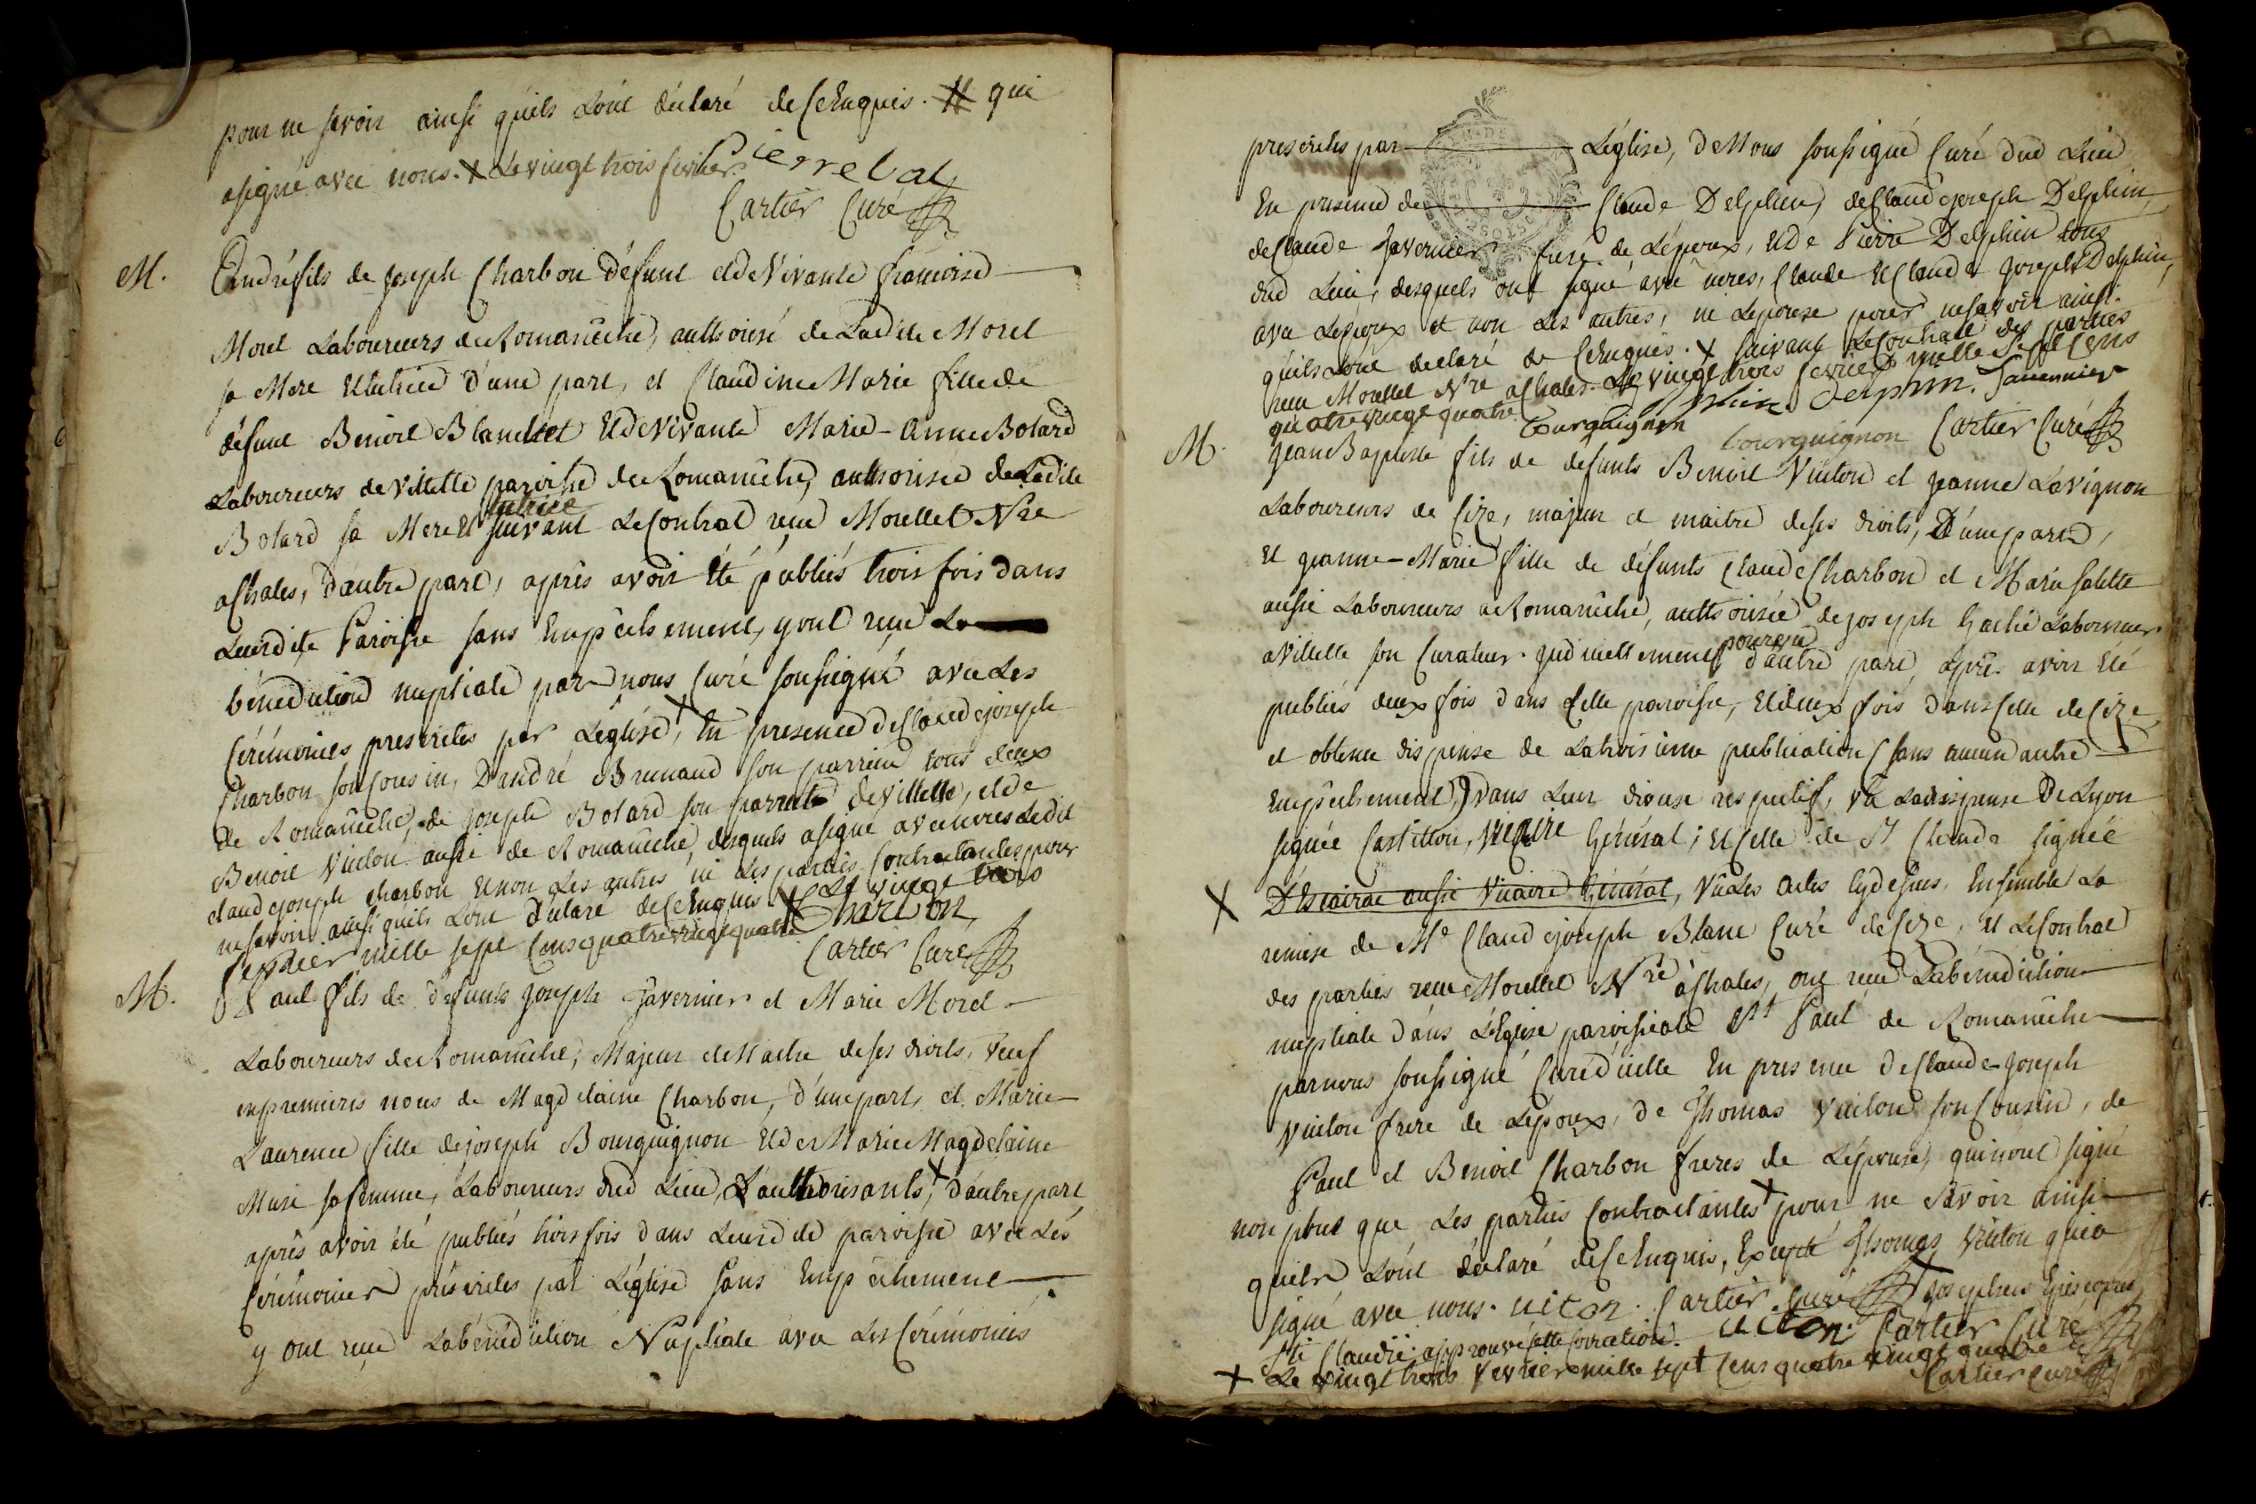 pour ne savoir ainsi qu'ils L'ont déclaré de Ce Enquis. # qui
a signé avec nous. x Le vingt trois fevrier Pierre Cat
Cartier Curé
M. André fils de Joseph Charbon défunt et de Vivante francoise
Morel Laboureurs de Romanêche, authorisé de Ladite Morel
sa Mere Et tutrice d'une part, et Claudine Marie fille de
défunt Benoit Blanchet Et de Vivante Marie-Anne Botard
Laboureurs de Villette paroisse de Romanêche, authorisée de Ladite
Botard sa Mere Et tutrice suivant Le Contrat recu Morellet Nre
a Chales, d'autre part, après avoir Eté publiés trois fois dans
Leurdite Paroisse sans Empêchement, y ont reçu La
bénédiction nuptiale par nous Curé soussigné avec Les
Cérémonies prescrites par L'église, x En presence de Claude joseph
Charbon son Cousin, D'andré Brunand son parrein tous deux
de Romanêche, de joseph Botard son parent de Villette, et de
Benoit Vuiton aussi de Romanêche, desquels a signé avec nous Ledit
claude joseph charbon Et non Les autres ni Les parties Contractantes pour
ne savoir ainsi qu'ils L'ont déclaré de Ce Enquis x Le vingt trois
fevrier mille sept Cens quatre vingt quatre Charbon
Cartier Curé
M. Paul fils de défunts Joseph Javernier et Marie Morel
Laboureurs de Romanêche, Majeur et Maitre de ses droits, veuf
en premieres noces de Magdelaine Charbon, d'une part, et Marie
Laurence fille de joseph Bourguignon Et de Marie Magdelaine
Musi sa femme, Laboureurs dud Lieu, L'authorisants, x d'autre part,
après avoir été publiés trois fois dans Leurdite paroisse avec Les
Cérémonies préscrites par L'église sans Empêchement
y ont reçu La bénédiction Nuptiale avec Les Cérémonies
prescrites par L'église, de Nous soussigné Curé dud Lieu
En presence de Claude Delphin, de Claude joseph Delphin,
de Claude Javernier frere de L'époux, Et de Pierre Delphin tous
dud Lieu, desquels ont signé avec nous, Claude Et Claude Joseph Delphin,
avec L'époux et non Les autres, ni L'épouse pour ne savoir ainsi
qu'ils L'ont declaré de Ce Enquis. x suivant Le Contrat des parties
recu Morellet Nre a Chales. Le vingt trois fevrier mille Sept Cens
quatre vingt quatre delphin. Javernier
Bourguignon bourguignon Cartier Curé
M. Jean Baptiste fils de defunts Benoit Vuiton et jeanne Lavignon
Laboureurs de Cize, majeur et maitre de ses droits, D'une part,
Et jeanne-Marie fille de défunts Claude Charbon et Marie Salette
aussi Laboureurs a Romanêche, authorisée de joseph Gaché Laboureur
a Villette son Curateur judiciellement pourvu d'autre part, après avoir Eté
publiés deux fois dans Cette paroisse, Et deux fois dans Celle de Cize
et obtenu dispense de La troisieme publication (sans aucun autre
Empêchement,) dans Leur diocese respectif, Vu La dispense De Lyon
signée Castillon, Vicaire Général; Et Celle de St Claude signée
x D'Escairac aussi Vicaire Général, Vu Les actes Cydessus, Ensemble La
remise de Me Claude joseph Blanc Curé de Cize, Et Le Contrat
des parties recu Morellet Nre a Chales, ont reçu La bénédiction
nuptiale dans L'Eglise paroissiale St Paul de Romanêche
par nous soussigné Curé d'icelle En presence de Claude-Joseph
Vuiton frere de L'époux, de Thomas Vuiton son Cousin, de
Paul et Benoit Charbon freres de L'épouse, qui n'ont signé
non plus que Les parties Contractantes x pour ne Savoir ainsi
qu'ils L'ont déclaré de Ce Enquis, Excepté Thomas Vuiton qui a
signé avec nous. uiton. Cartier Curé x Josephus Episcopus
Sti Claudii. approuvé Cette Correction. uiton Cartier Curé
x Le vingt trois fevrier mille sept Cens quatre vingt quatre
Cartier Curé